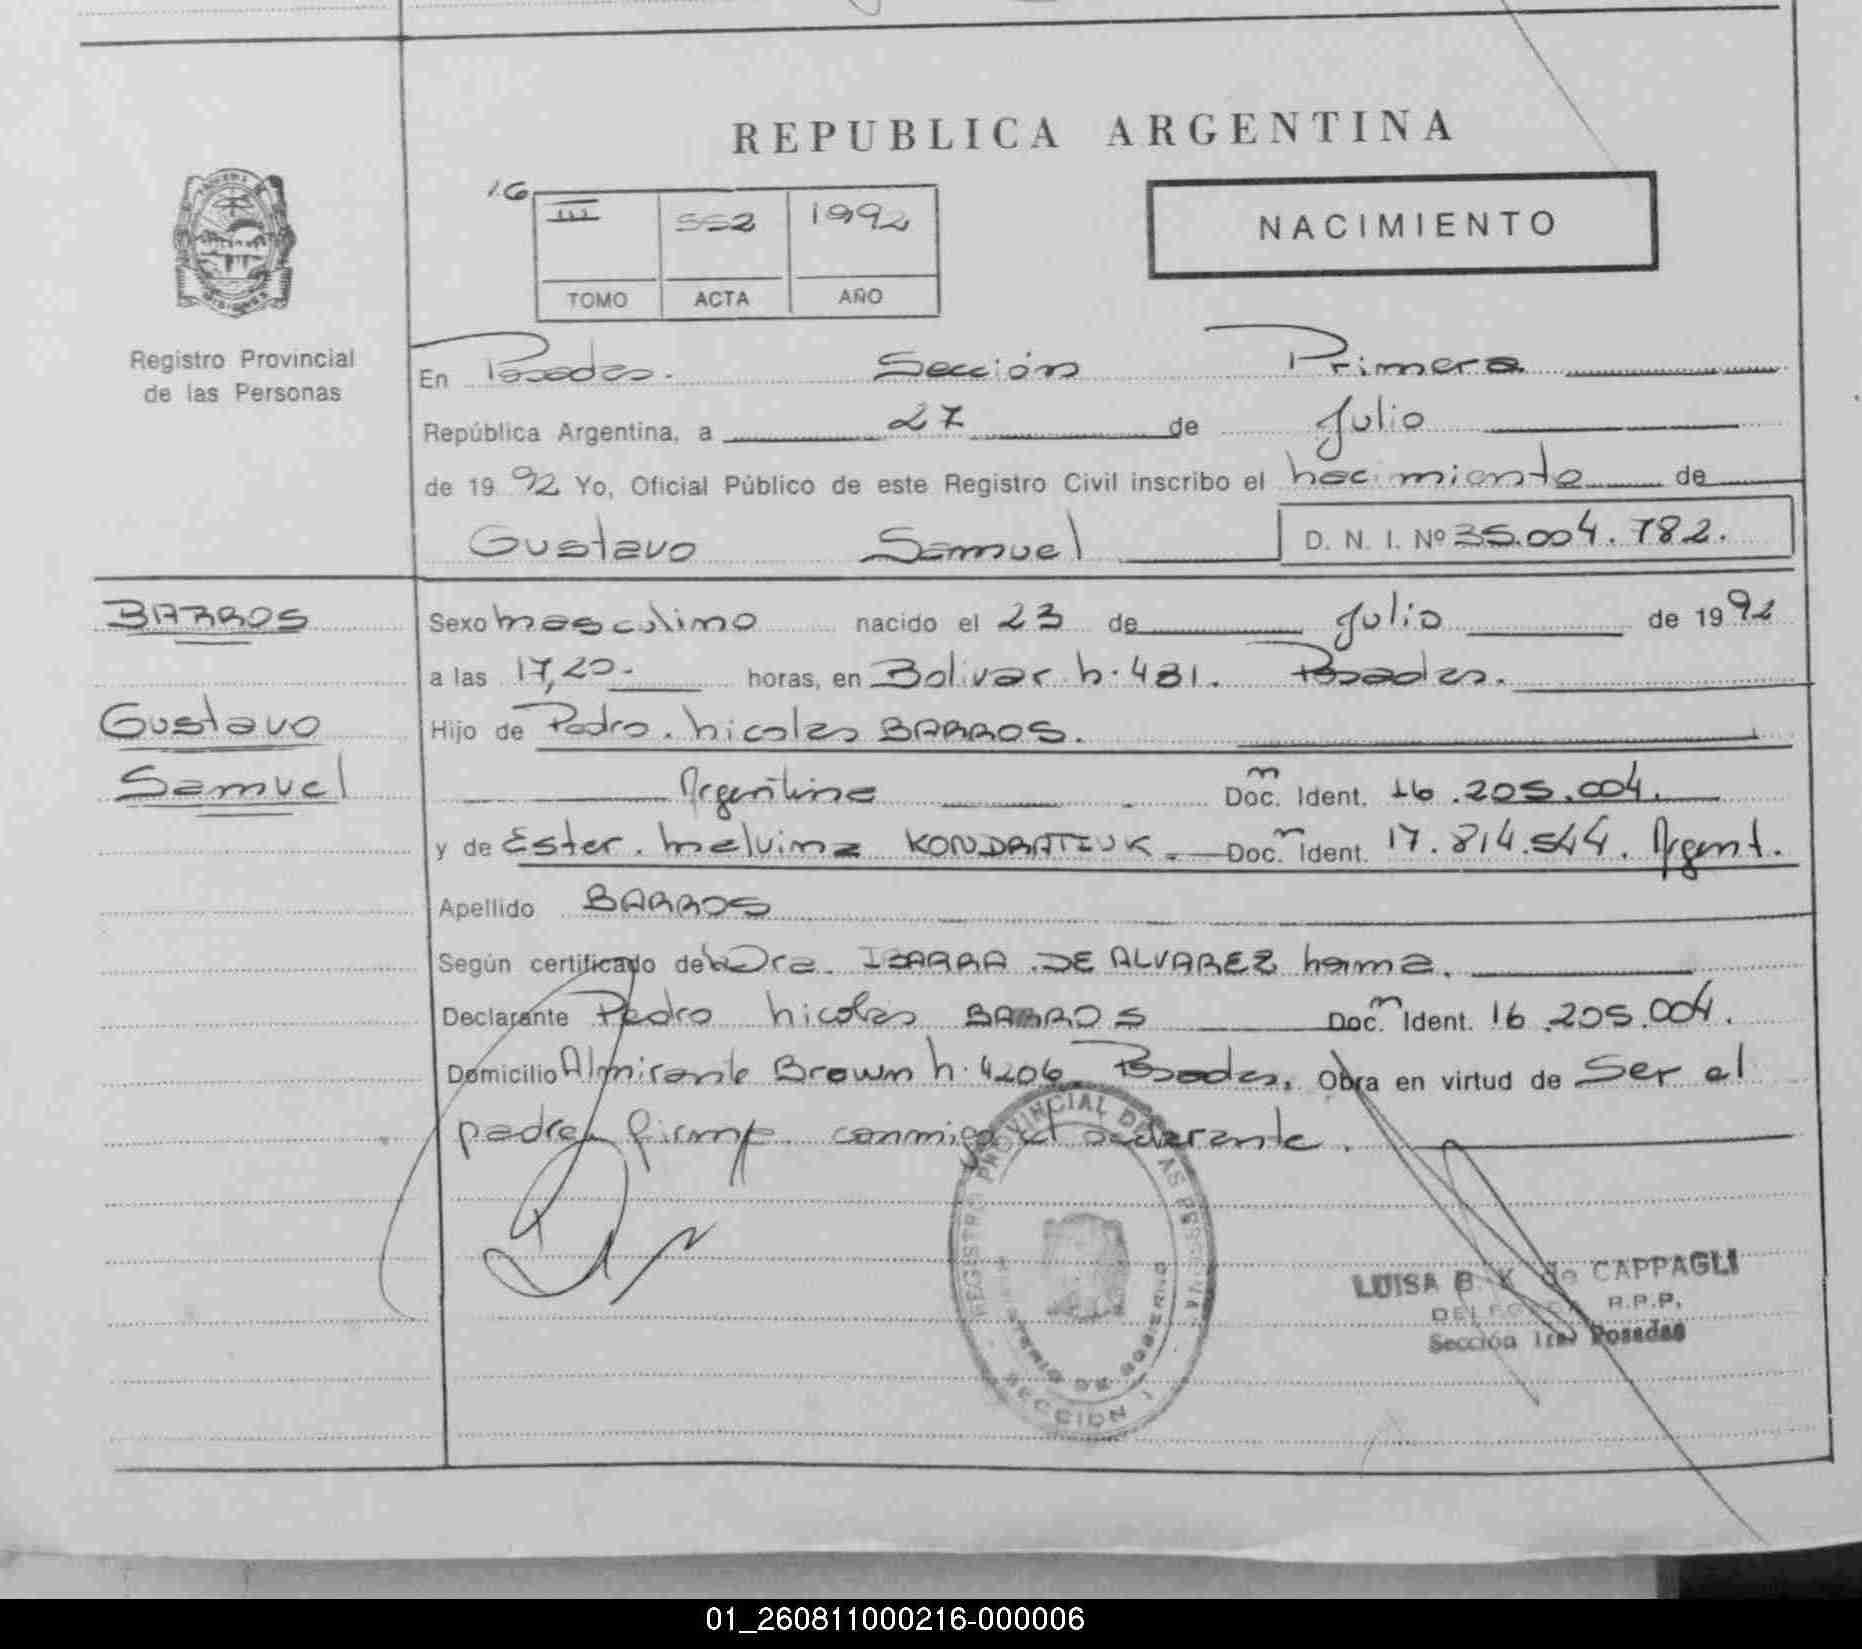 REPUBLICA ARGENTINA
16
III 552 1992
TOMO ACTA AÑO
NACIMIENTO
Registro Provincial
de las Personas
En Posadas. Sección Primera
República Argentina, a 27 de Julio
de 1992 Yo, Oficial Público de este Registro Civil inscribo el nacimiento de
Gustavo Samuel D. N. I. Nº 35.004.782.
BARROS
Gustavo
Samuel
Sexo masculino nacido el 23 de Julio de 1992
a las 17,20. horas, en Bolivar n. 481. Posadas.
Hijo de Pedro. Nicolas BARROS.
Argentino Doc. m Ident. 16.205.004.
y de Ester. Malvina KONDRATIUK. Doc. m Ident. 17.814.544. Argent.
Apellido BARROS
Según certificado de Dra. IBARRA DE ALVAREZ Norma.
Declarante Pedro Nicolas BARROS Doc. m Ident. 16.205.004.
Domicilio Almirante Brown n. 4206. Posadas. Obra en virtud de Ser el
padre, firma conmigo el declarante.
REGISTRO PROVINCIAL DE LAS PERSONAS
MINISTERIO DE GOBIERNO
SECCION 1
LUISA B. K. de CAPPAGLI
DELEGADA R.P.P.
Sección 1ra Posadas
01_260811000216-000006